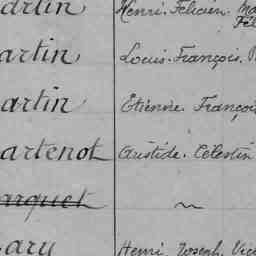 artin Henri. Félicien. Ma
Fél
artin Louis. François.
artin Etienne. François
artenot Aristide. Célestin
arquet ~
ary Henri Joseph. Vic